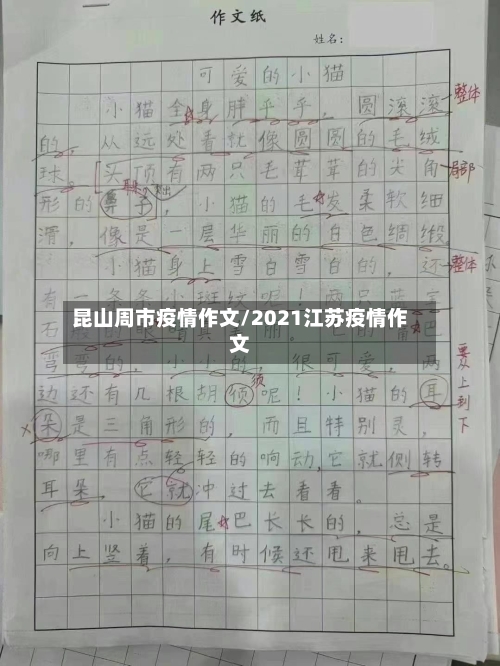 作文纸
姓名:
可爱的小猫
小猫全身胖乎乎，圆滚滚
整体
的，从远处看就像圆圆的毛绒
球。[头顶有两只毛茸茸的尖角
局部
形的鼻子，小猫的毛发柔软细
滑，像是一层华丽的白色绸缎
小猫身上雪白雪白的，还
整体
有一条条小斑纹呢！两只蓝
昆山周市疫情作文/2021江苏疫情作
文
石
巴
弯弯的，小小的，很可爱，两
要从上到下
须
边还有几根胡须呢！小猫的耳
朵是三角形的，而且特别灵，
哪里有点轻轻的响动，它就侧转
耳朵，它就冲过去看看。
小猫的尾巴长长的，总是
向上竖着，有时候还甩来甩去。